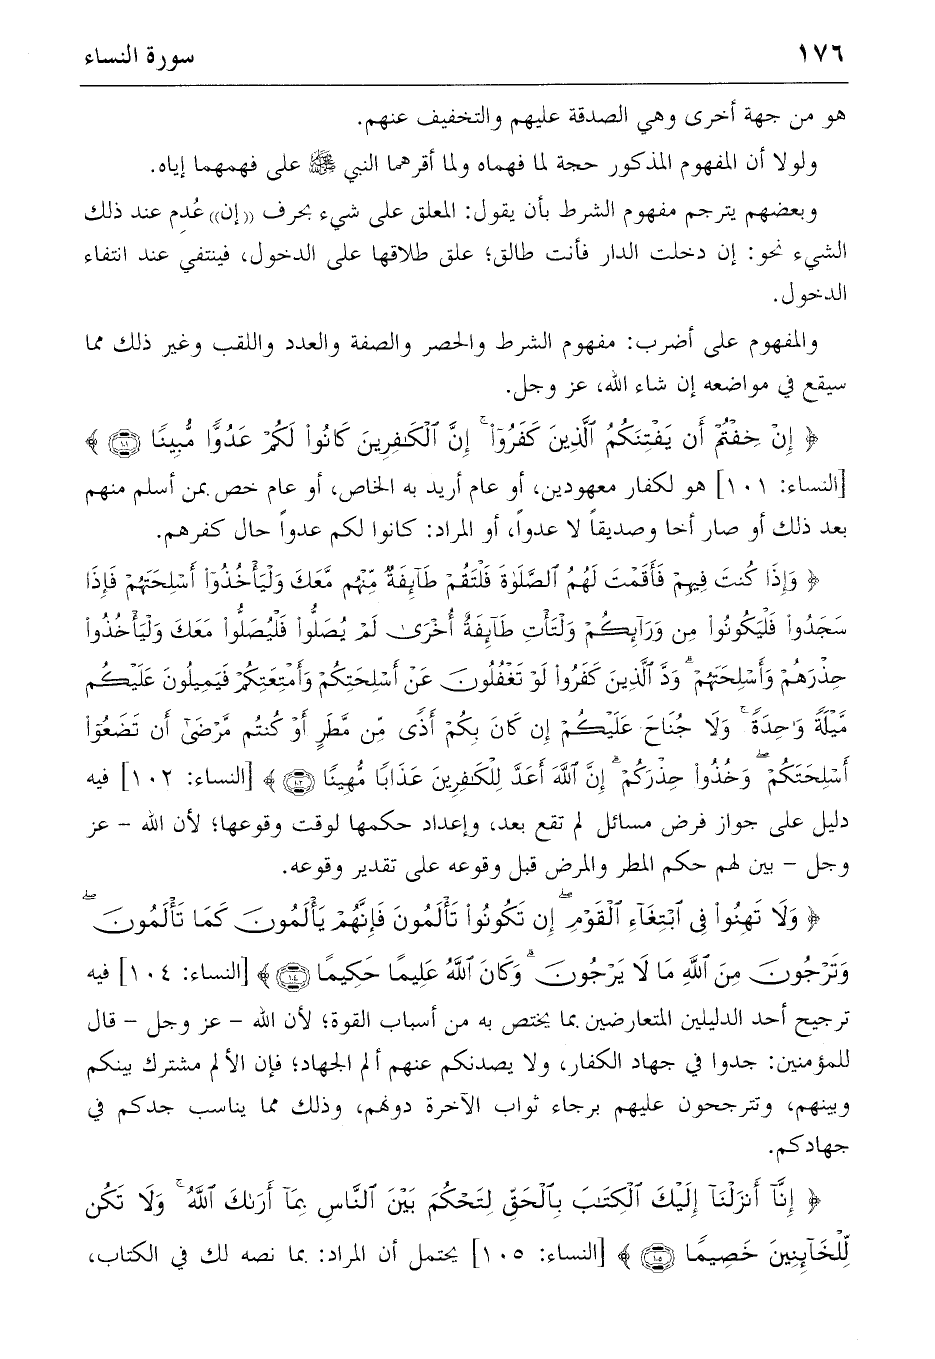 ١٧٦ سورة النساء
هو من جهة أخرى وهي الصدقة عليهم والتخفيف عنهم.
ولولا أن المفهوم المذكور حجة لما فهماه ولما أقرهما النبي ﷺ على فهمهما إياه.
وبعضهم يترجم مفهوم الشرط بأن يقول: المعلق على شيء بحرف ((إن)) عُدِم عند ذلك
الشيء نحو: إن دخلت الدار فأنت طالق؛ علق طلاقها على الدخول، فينتفي عند انتفاء
الدخول.
والمفهوم على أضرب: مفهوم الشرط والحصر والصفة والعدد واللقب وغير ذلك مما
سيقع في مواضعه إن شاء الله، عز وجل.
﴿ إِنْ خِفْتُمْ أَن يَفْتِنَكُمُ ٱلَّذِينَ كَفَرُوٓا۟ ۚ إِنَّ ٱلْكَـٰفِرِينَ كَانُوا۟ لَكُمْ عَدُوًّا مُّبِينًا ١٠١ ﴾
[النساء: ١٠١] هو لكفار معهودين، أو عام أريد به الخاص، أو عام خص بمن أسلم منهم
بعد ذلك أو صار أخا وصديقاً لا عدواً، أو المراد: كانوا لكم عدواً حال كفرهم.
﴿ وَإِذَا كُنتَ فِيهِمْ فَأَقَمْتَ لَهُمُ ٱلصَّلَوٰةَ فَلْتَقُمْ طَآئِفَةٌ مِّنْهُم مَّعَكَ وَلْيَأْخُذُوٓا۟ أَسْلِحَتَهُمْ فَإِذَا
سَجَدُوا۟ فَلْيَكُونُوا۟ مِن وَرَآئِكُمْ وَلْتَأْتِ طَآئِفَةٌ أُخْرَىٰ لَمْ يُصَلُّوا۟ فَلْيُصَلُّوا۟ مَعَكَ وَلْيَأْخُذُوا۟
حِذْرَهُمْ وَأَسْلِحَتَهُمْ ۗ وَدَّ ٱلَّذِينَ كَفَرُوا۟ لَوْ تَغْفُلُونَ عَنْ أَسْلِحَتِكُمْ وَأَمْتِعَتِكُمْ فَيَمِيلُونَ عَلَيْكُم
مَّيْلَةً وَٰحِدَةً ۚ وَلَا جُنَاحَ عَلَيْكُمْ إِن كَانَ بِكُمْ أَذًى مِّن مَّطَرٍ أَوْ كُنتُم مَّرْضَىٰٓ أَن تَضَعُوٓا۟
أَسْلِحَتَكُمْ ۖ وَخُذُوا۟ حِذْرَكُمْ ۗ إِنَّ ٱللَّهَ أَعَدَّ لِلْكَـٰفِرِينَ عَذَابًا مُّهِينًا ١٠٢ ﴾ [النساء: ١٠٢] فيه
دليل على جواز فرض مسائل لم تقع بعد، وإعداد حكمها لوقت وقوعها؛ لأن الله – عز
وجل – بين لهم حكم المطر والمرض قبل وقوعه على تقدير وقوعه.
﴿ وَلَا تَهِنُوا۟ فِى ٱبْتِغَآءِ ٱلْقَوْمِ ۖ إِن تَكُونُوا۟ تَأْلَمُونَ فَإِنَّهُمْ يَأْلَمُونَ كَمَا تَأْلَمُونَ ۖ
وَتَرْجُونَ مِنَ ٱللَّهِ مَا لَا يَرْجُونَ ۗ وَكَانَ ٱللَّهُ عَلِيمًا حَكِيمًا ١٠٤ ﴾ [النساء: ١٠٤] فيه
ترجيح أحد الدليلين المتعارضين بما يختص به من أسباب القوة؛ لأن الله – عز وجل – قال
للمؤمنين: جدوا في جهاد الكفار، ولا يصدنكم عنهم ألم الجهاد؛ فإن الألم مشترك بينكم
وبينهم، وتترجحون عليهم برجاء ثواب الآخرة دونهم، وذلك مما يناسب جدكم في
جهادكم.
﴿ إِنَّآ أَنزَلْنَآ إِلَيْكَ ٱلْكِتَـٰبَ بِٱلْحَقِّ لِتَحْكُمَ بَيْنَ ٱلنَّاسِ بِمَآ أَرَىٰكَ ٱللَّهُ ۚ وَلَا تَكُن
لِّلْخَآئِنِينَ خَصِيمًا ١٠٥ ﴾ [النساء: ١٠٥] يحتمل أن المراد: بما نصه لك في الكتاب،